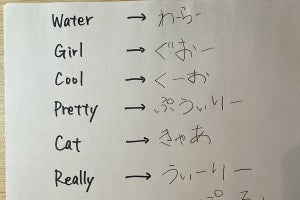 Water → わらー
Girl → ぐおー
Cool → くーお
Pretty → ぷうぃりー
Cat → きゃあ
Really → うぃーりー